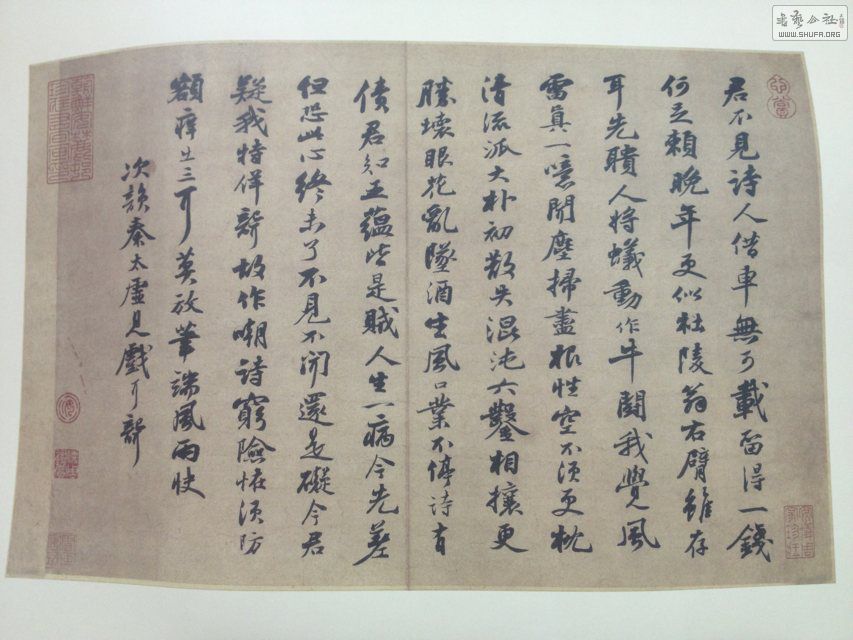 君不見詩人借車無可載留得一錢
何足賴晚年更似杜陵翁右臂雖存
耳先聵人將蟻動作牛鬪我覺風
雷真一噫聞塵掃盡根性空不須更枕
清流派大朴初散失混沌六鑿相攘更
勝壞眼花亂墜酒生風口業不停詩有
債君知五蘊皆是賊人生一病今先差
但恐此心終未了不見不聞還是礙今君
疑我特佯聾故作嘲詩窮險怪須防
額痒出三耳莫放筆端風雨快
次韻秦太虛見戲耳聾
書藝公社
WWW.SHUFA.ORG